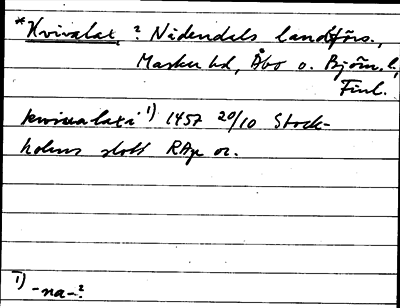 *Kvivalax, ? Nådendals landförs.,
Masku hd, Åbo o. Björn. l.,
Finl.
kwiualaxi 1) 1457 20/10 Stock-
holms slott RAp or.
1) -na-?